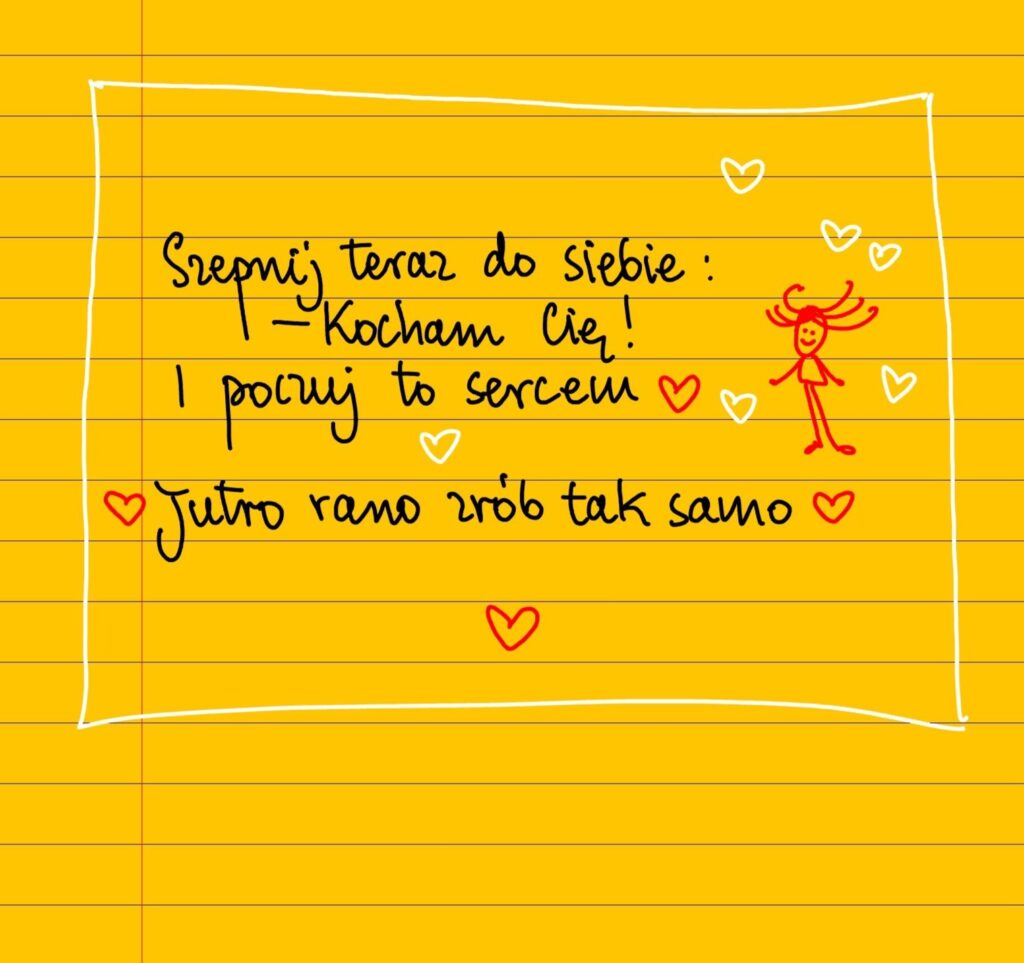 Szepnij teraz do siebie:
- Kocham Cię!
I poczuj to sercem
Jutro rano zrób tak samo